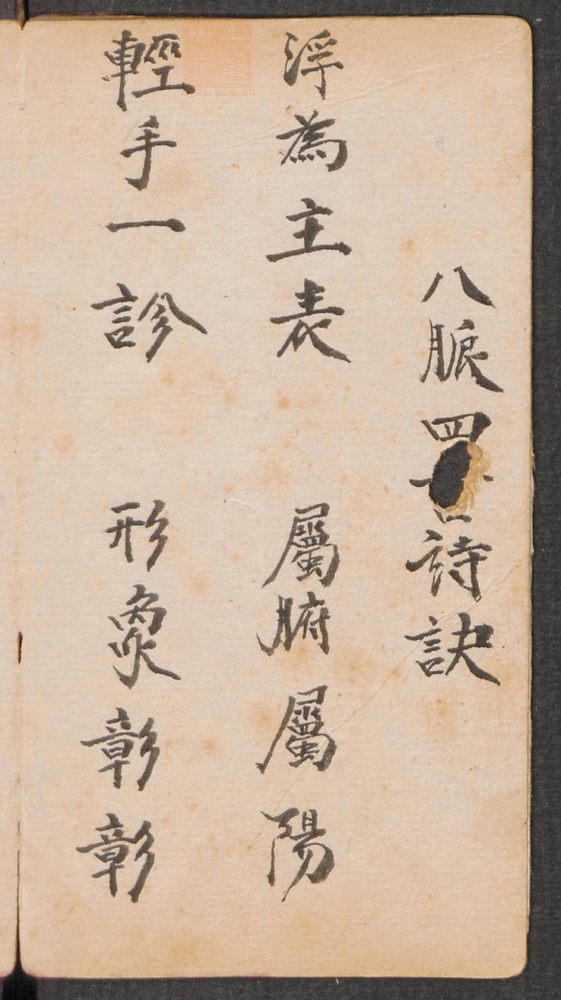 八脈四言詩訣
浮為主表　屬腑屬陽
輕手一診　形象彰彰